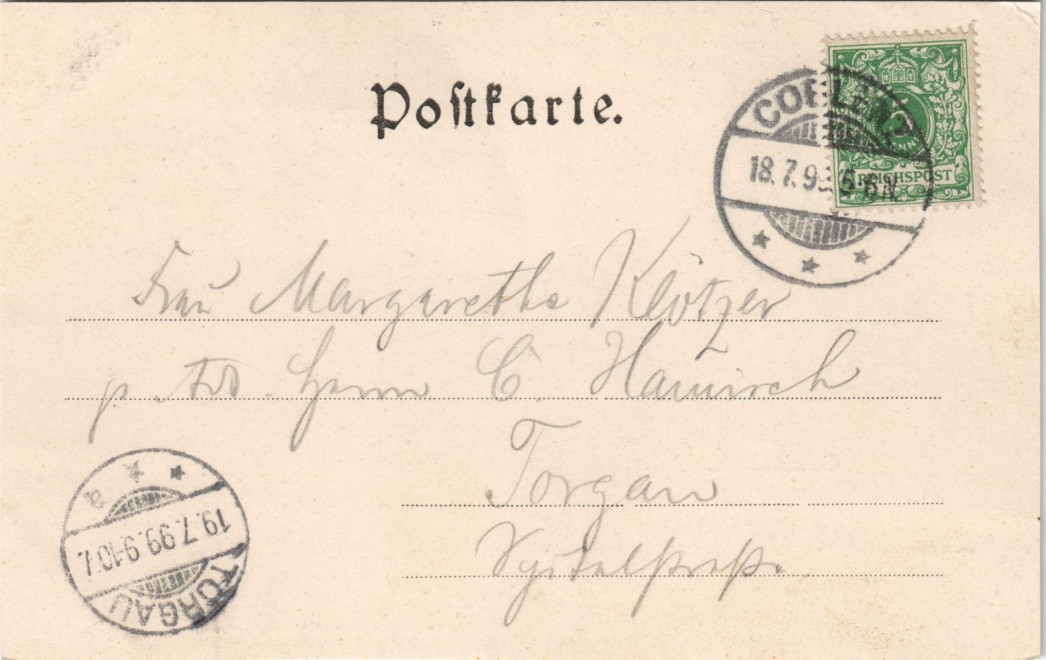 Postkarte.
COBLENZ
18.7.99. 5-6N.
REICHSPOST
Frau Margarethe Klötzer
p. Adr. Herrn C. Hanisch
Torgau
Spitalstraße.
a
19.7.99. 9-10V.
TORGAU